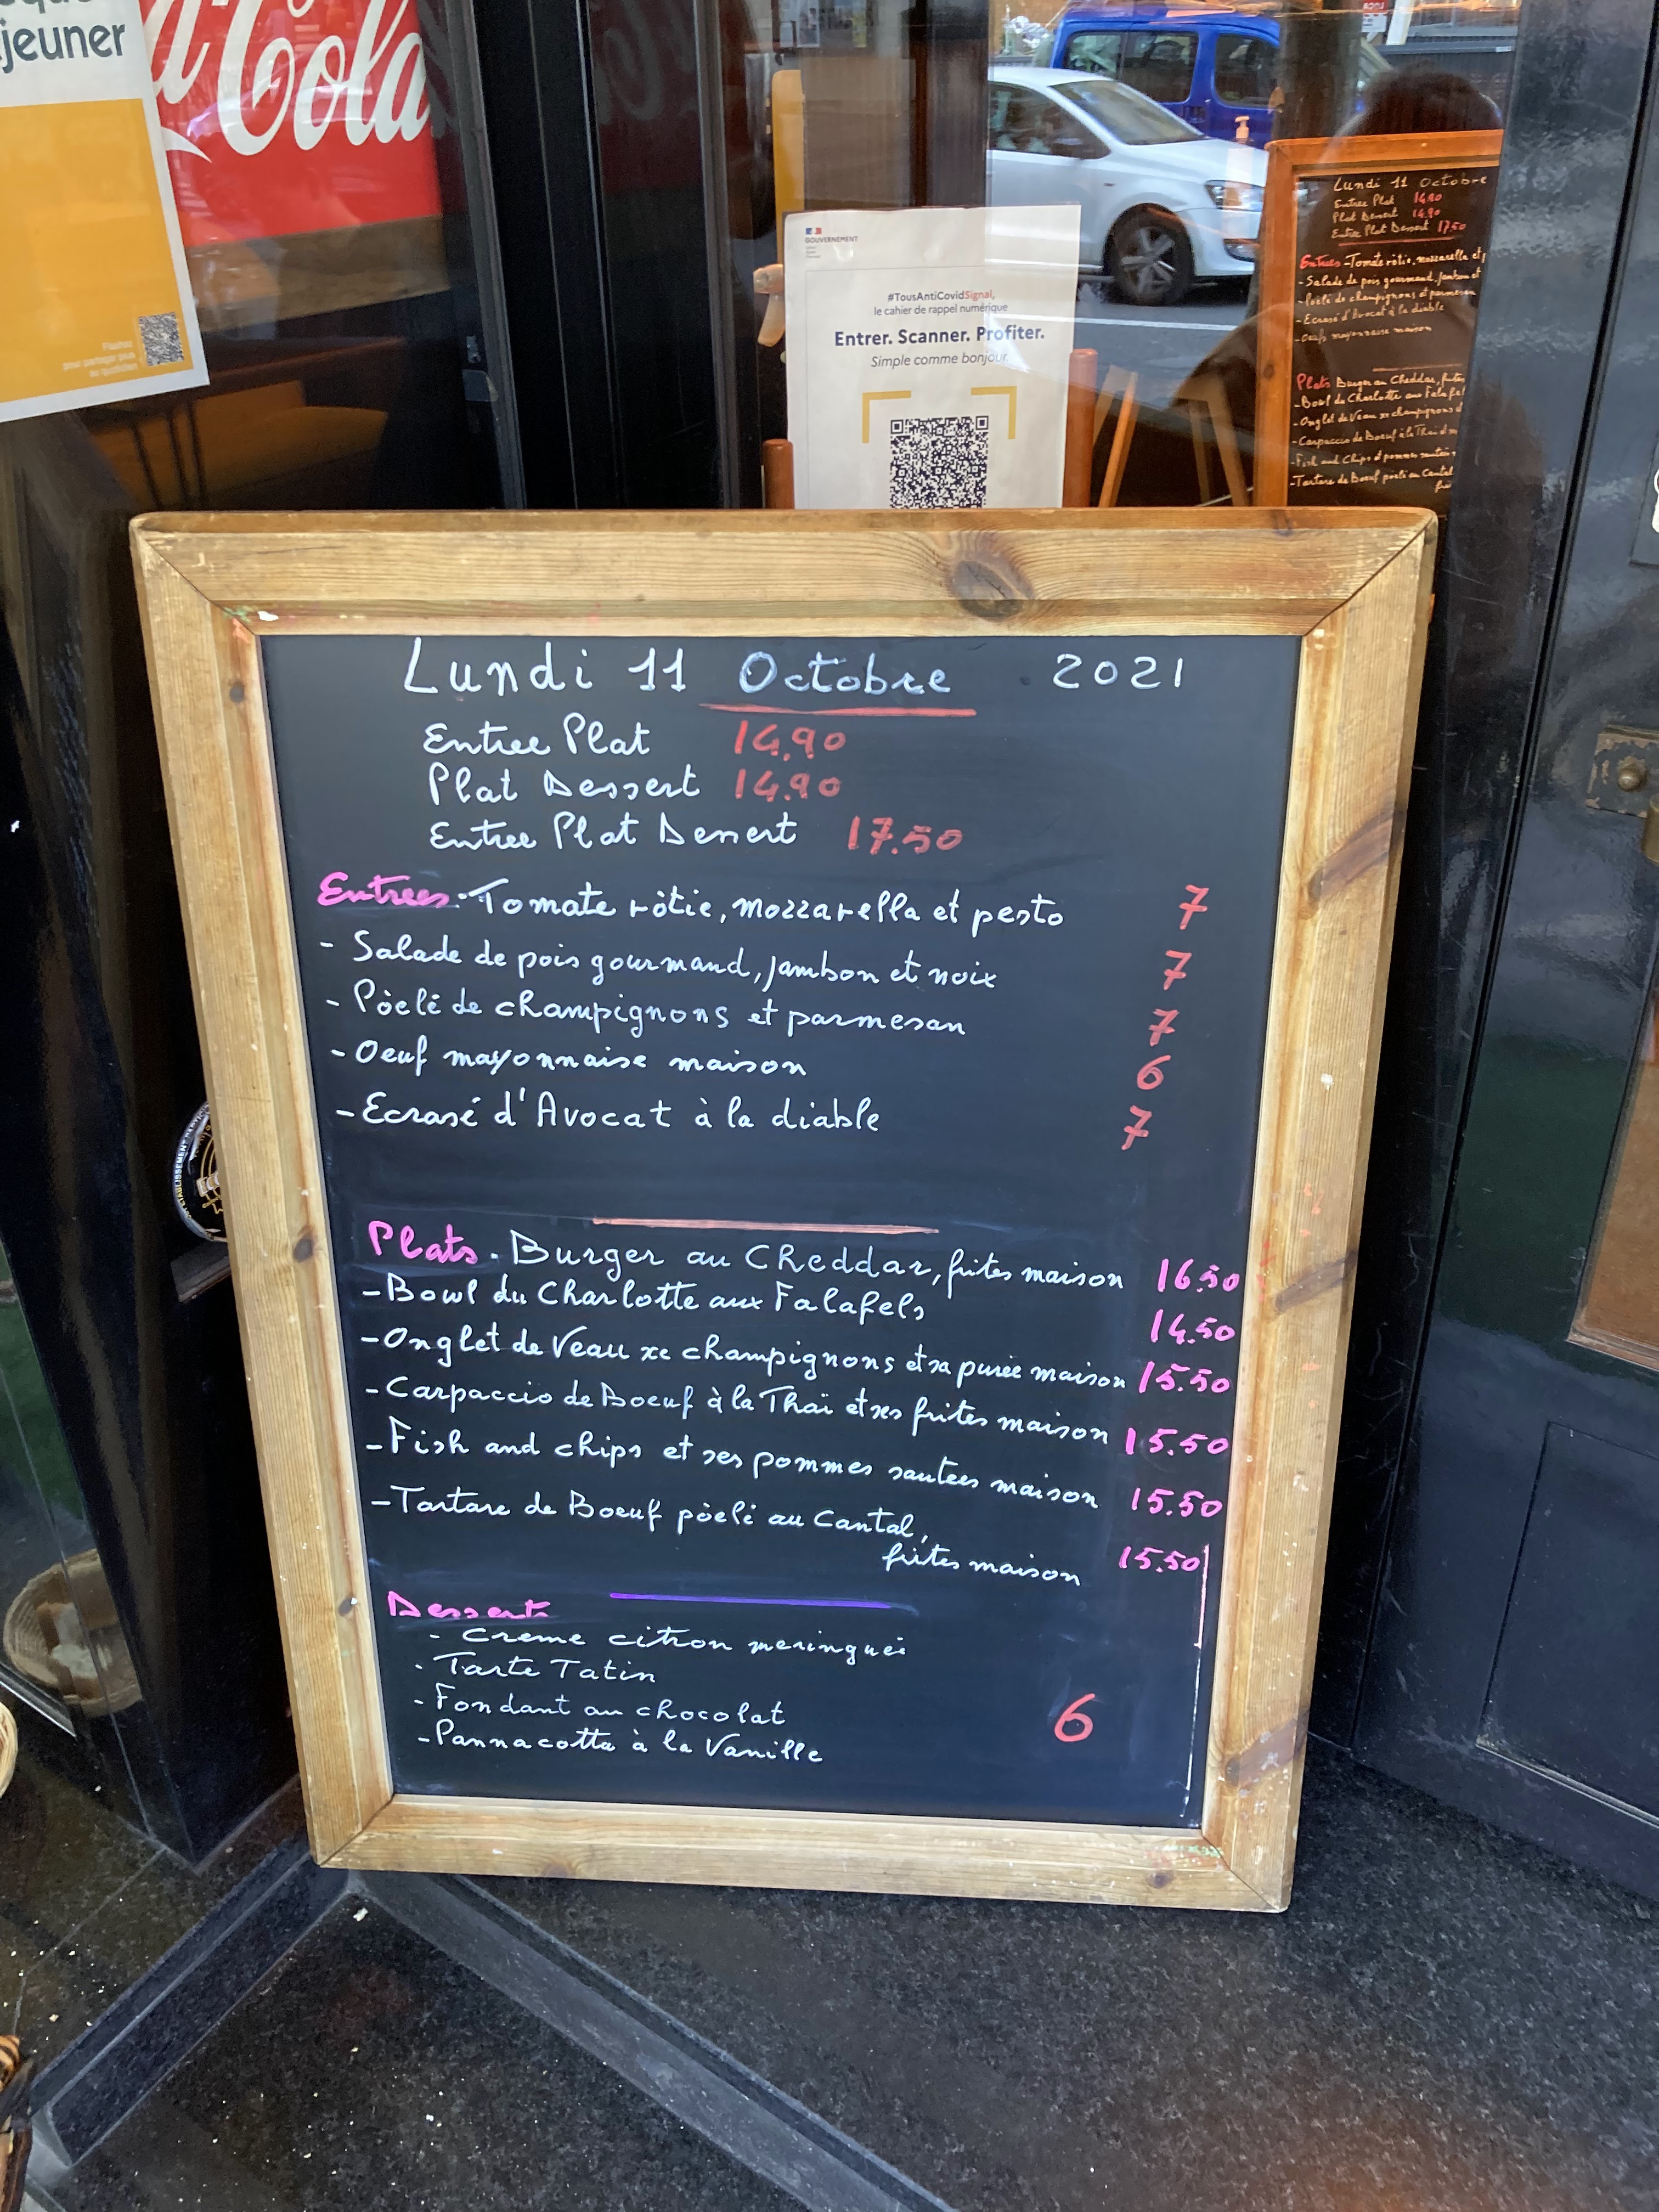 jeuner
Cola
Flashez
pour partager plus
au quotidien
GOUVERNEMENT
#TousAntiCovidSignal,
le cahier de rappel numérique
Entrer. Scanner. Profiter.
Simple comme bonjour.
Lundi 11 Octobre
Entree Plat 14.90
Plat Dessert 14.90
Entree Plat Dessert 17.50
Entrees - Tomate rôtie, mozzarella et
- Salade de pois gourmand, jambon et
- Poêlé de champignons et parmesan
- Ecrasé d'Avocat à la diable
- Oeufs mayonnaise maison
Plats Burger au Cheddar, frites
- Bowl du Charlotte aux Falafel
- Onglet de Veau xe champignons
- Carpaccio de Boeuf à la Thaï
- Fish and Chips et pommes sautées
- Tartare de Boeuf poêlé au Cantal
Lundi 11 Octobre 2021
Entree Plat 14.90
Plat Dessert 14.90
Entree Plat Dessert 17.50
Entrees - Tomate rôtie, mozzarella et pesto 7
- Salade de pois gourmand, jambon et noix 7
- Pòelé de champignons et parmesan 7
- Oeuf mayonnaise maison 6
- Ecrasé d'Avocat à la diable 7
Plats - Burger au Cheddar, frites maison 16.50
- Bowl du Charlotte aux Falafels 14.50
- Onglet de Veau xe champignons et sa purée maison 15.50
- Carpaccio de Boeuf à la Thaï et ses frites maison 15.50
- Fish and chips et ses pommes sautees maison 15.50
- Tartare de Boeuf pòelé au Cantal,
frites maison 15.50
Desserts
- Creme citron meringuée
- Tarte Tatin
- Fondant au chocolat 6
- Panna cotta à la Vanille